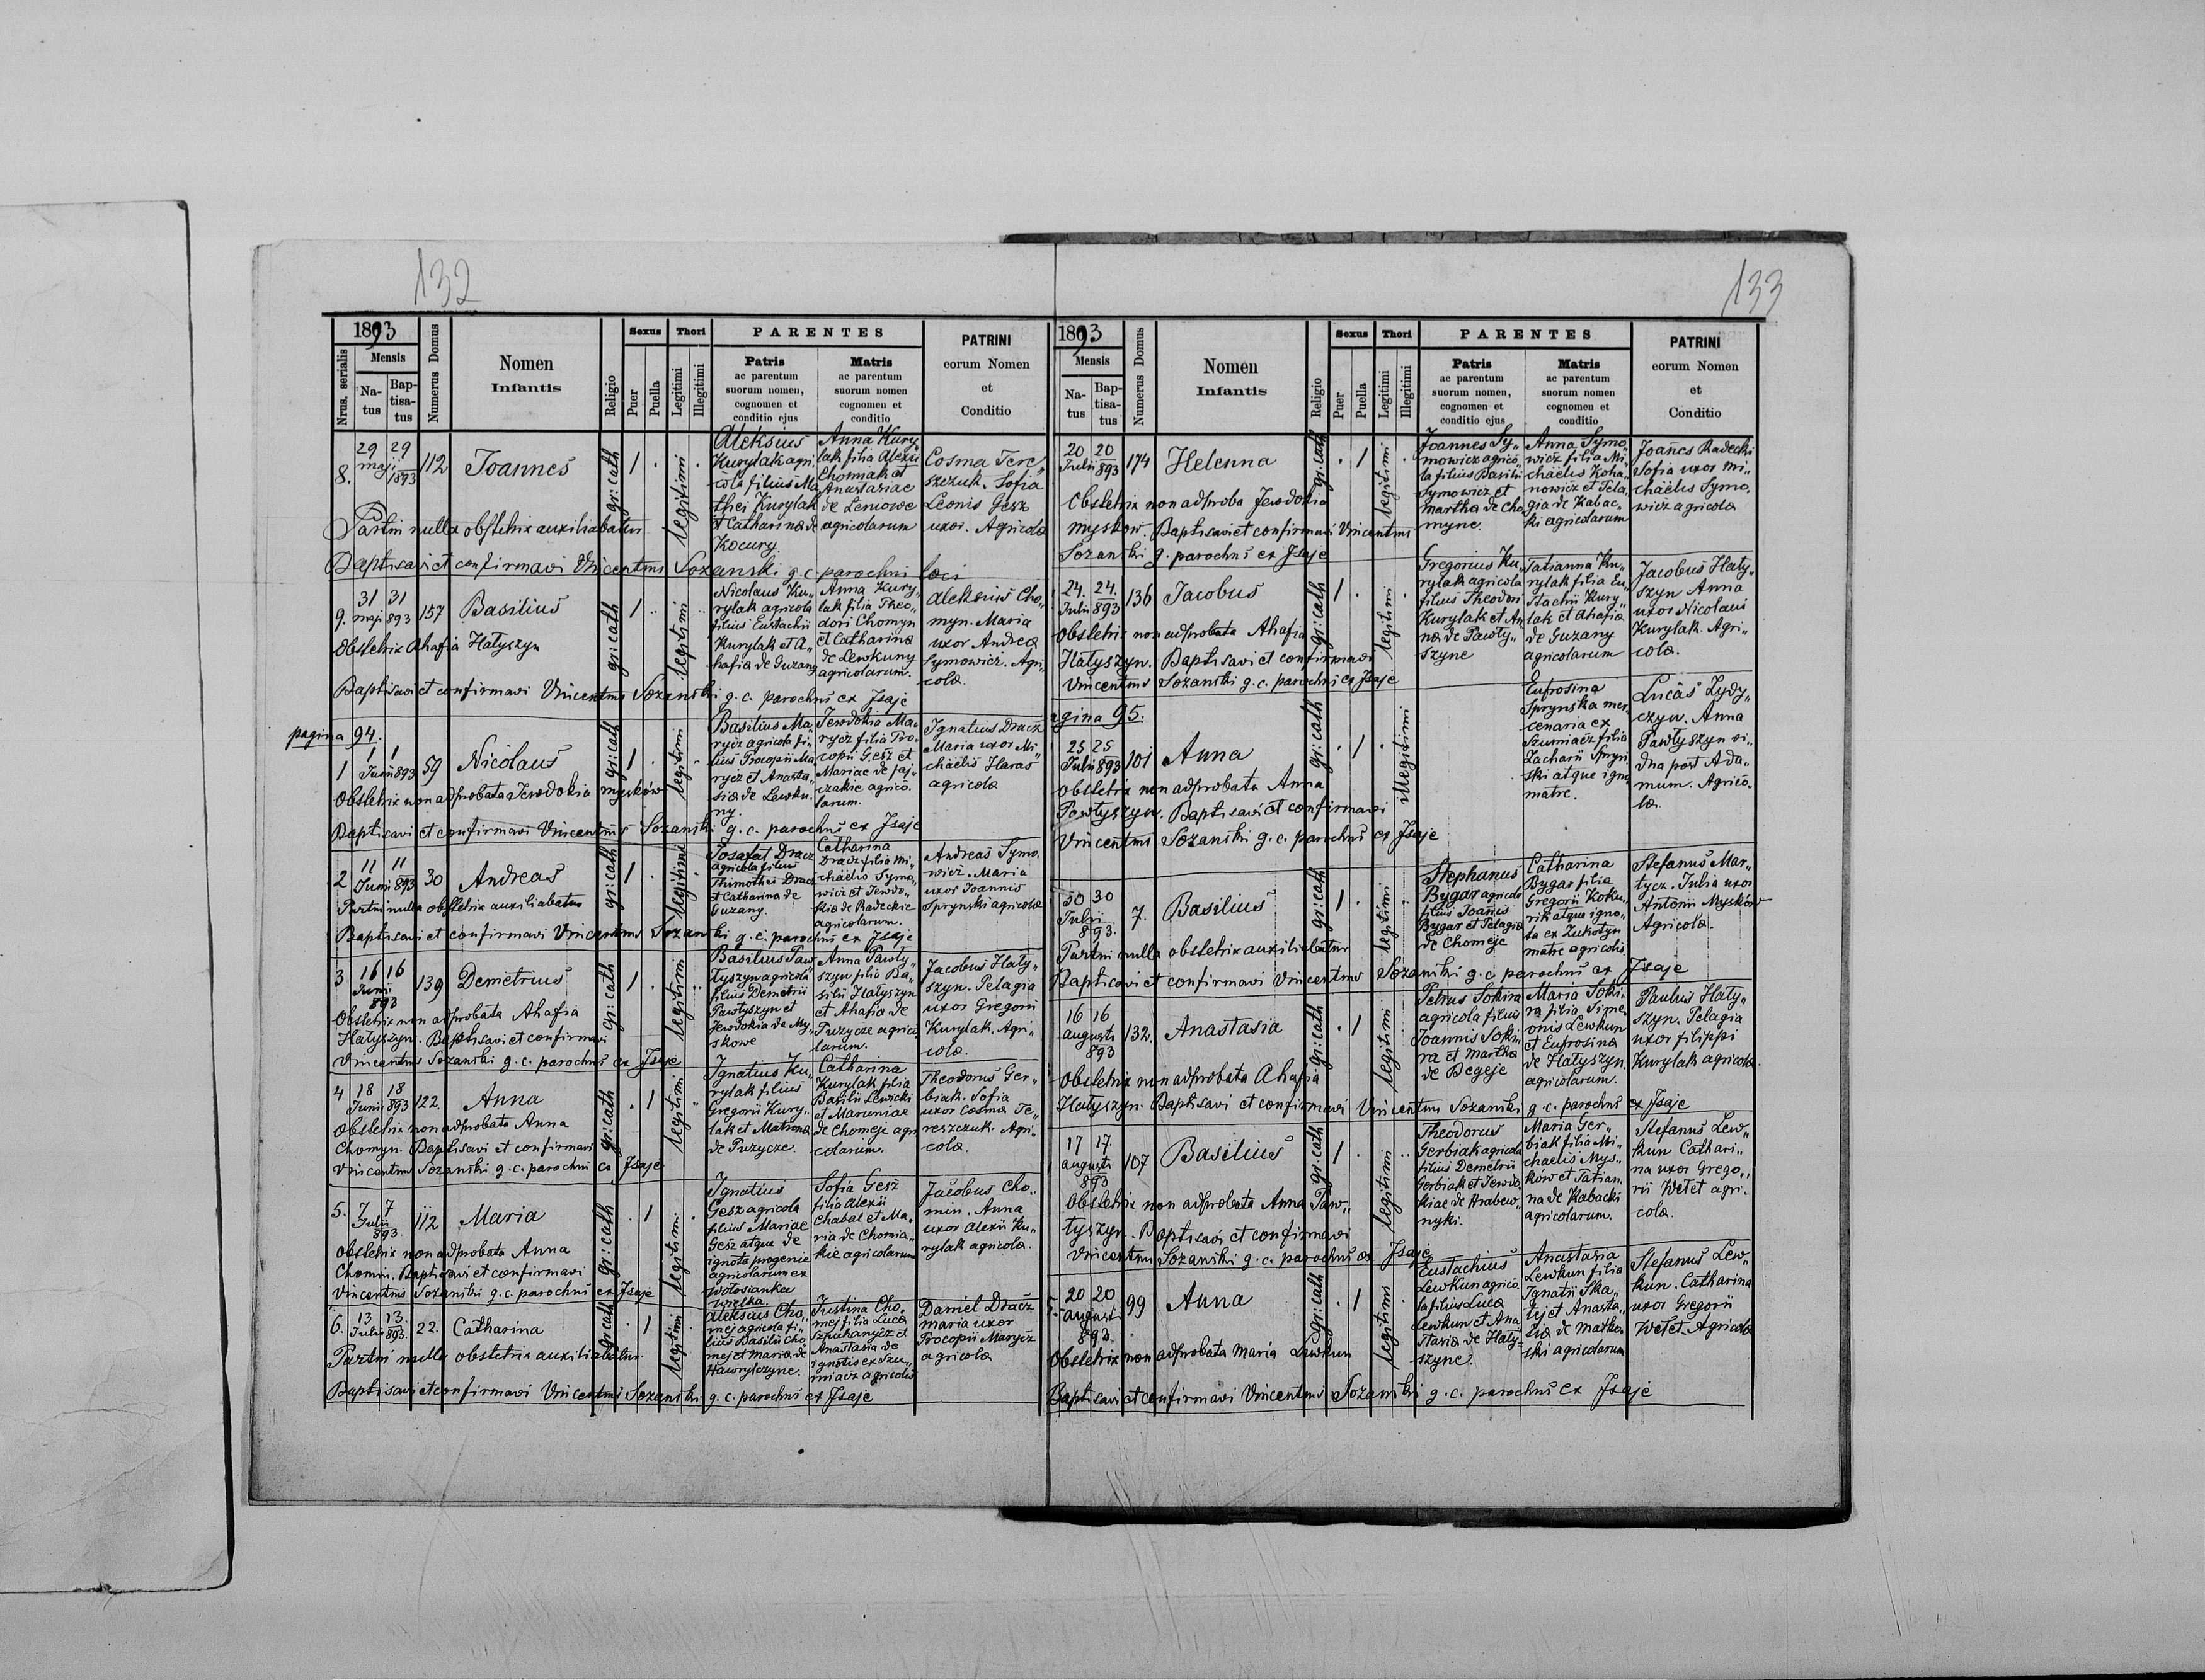 132
1893
Nrus. serialis
Mensis
Na-
tus
Bap-
tisa-
tus
Numerus Domus
Nomen
Infantis
Religio
Sexus
Puer
Puella
Thori
Legitimi
Illegitimi
PARENTES
Patris
ac parentum
suorum nomen,
cognomen et
conditio ejus
Matris
ac parentum
suorum nomen
cognomen et
conditio
PATRINI
eorum Nomen
et
Conditio
8.
29
maj.
29
1893
112
Joannes
gr: cath
1
.
legitimi
.
Aleksius
Kurylak agri„
cola filius Ma„
thei Kurylak
et Catharina de
Kocury.
Anna Kury„
lak filia Alexii
Chomiak et
Anastasiae
de Leniowe
agricolarum
Cosma Tere„
szczuk. Sofia
Leonis Gesz
uxor. Agricola
Partui nulla obstetrix auxiliabatur
Baptisavi et confirmavi Vincentius Sozanski g. c. parochus loci
9.
31
maji
31
893
157
Basilius
gr: cath
1
legitimi
Nicolaus Ku„
rylak agricola
filius Eustachii
Kurylak et A„
hafia de Guzany
Anna Kury„
lak filia Theo„
dori Chomyn
et Catharina
de Lewkuny
agricolarum.
Aleksius Cho„
myn. Maria
uxor Andrea
Symowicz. Agri„
cola.
Obstetrix Ahafia Hatyszyn
Baptisavi et confirmavi Vincentius Sozanski g. c. parochus ex Jsaje
pagina 94.
1
1
Junii
1
893
59
Nicolaus
gr: cath
1
legitimi
Basilius Ma„
rycz agricola fi„
lius Procopii Ma„
rycz et Anasta„
sia de Lewku„
ny.
Jewdokia Ma„
rycz filia Pro„
copii Gesz et
Mariae de Jaj„
czakie agrico„
larum.
Ignatius Dracz
Maria uxor Mi„
chaelis Haras
agricola
Obstetrix non adprobata Jewdokia Myskow
Baptisavi et confirmavi Vincentius Sozanski g. c. parochus ex Jsaje
2
11
Junii
11
893
30
Andreas
gr: cath
1
legitimi
Josafat Dracz
agricola filius
Thimothei Dracz
et Catharina de
Guzany.
Catharina
Dracz filia Mi„
chaelis Symo„
wicz et Jewdo„
kia de Radeckie
agricolarum.
Andreas Symo„
wicz. Maria
uxor Joannis
Sprynski agricola
Partui nulla obstetrix auxiliabatur
Baptisavi et confirmavi Vincentius Sozanski g. c. parochus ex Jsaje
3
16
Junii
16
893
139
Demetrius
gr: cath
1
legitimi
Basilius Paw„
tyszyn agricola
filius Demetrii
Pawtyszyn et
Jewdokia de My„
skowe
Anna Pawty„
szyn filia Ba„
silii Hatyszyn
et Ahafia de
Puzycze agrico„
larum.
Jacobus Haty„
szyn. Pelagia
uxor Gregorii
Kurylak. Agri„
cola.
Obstetrix non adprobata Ahafia
Hatyszyn. Baptisavi et confirmavi
Vincentius Sozanski g. c. parochus ex Jsaje
4
18
Junii
18
893
122.
Anna
gr: cath
. 1
legitimi
Ignatius Ku„
rylak filius
Gregorii Kury„
lak et Matrona
de Puzycze.
Catharina
Kurylak filia
Basilii Lewicki
et Maruniae
de Chomeje agri
colarum.
Theodorus Ger„
biak. Sofia
uxor Cosma Te„
reszczuk. Agri„
cola.
Obstetrix non adprobata Anna
Chomyn. Baptisavi et confirmavi
Vincentius Sozanski g. c. parochus ex Jsaje
5.
7
Julii
7
893.
112
Maria
gr: cath
. 1
legitimi.
Ignatius
Gesz agricola
filius Mariae
Gesz atque de
ignota progenie
agricolarum ex
Wotosianka
wielka.
Sofia Gesz
filia Alexii
Chabal et Ma„
ria de Chomia„
kie agricolarum
Jacobus Cho„
min. Anna
uxor Alexii Ku„
rylak agricola.
Obstetrix non adprobata Anna
Chomin. Baptisavi et confirmavi
Vincentius Sozanski g. c. parochus ex Jsaje
6.
13
Julii
13.
893.
22.
Catharina
gr: cath
. 1
legitimi
Aleksius Cho„
mej agricola fi„
lius Basilii Cho„
mej et Maria de
Hawrylczyne.
Justina Cho„
mej filia Luca
Szpuhanycz et
Anastasia de
ignotis ex Szu„
miacz agricolis
Daniel Dracz
Maria uxor
Procopii Marycz
agricola
Partui nulla obstetrix auxiliabatur.
Baptisavi et confirmavi Vincentius Sozanski g. c. parochus ex Jsaje
133
1893.
Mensis
Na-
tus
Bap-
tisa-
tus
Numerus Domus
Nomen
Infantis
Religio
Sexus
Puer
Puella
Thori
Legitimi
Illegitimi
PARENTES
Patris
ac parentum
suorum nomen,
cognomen et
conditio ejus
Matris
ac parentum
suorum nomen
cognomen et
conditio
PATRINI
eorum Nomen
et
Conditio
20
Julii
20
893
174
Helenna
gr: cath
. 1
legitimi
Joannes Sy„
mowicz agrico„
la filius Basilii
Symowicz et
Martha de Cho„
myne.
Anna Symo„
wicz filia Mi„
chaelis Koha„
nowicz et Pela„
gia de Kabac„
ki agricolarum
Joannes Radecki
Sofia uxor Mi„
chaelis Symo„
wicz agricola
Obstetrix non adproba Jewdokia
Myskow. Baptisavi et confirmavi Vincentius
Sozanski g. parochus ex Jsaje
24.
Julii
24.
893
136
Jacobus
gr: cath
1 .
legitimi
Gregorius Ku„
rylak agricola
filius Theodori
Kurylak et An
na de Pawty„
szyne
Tatianna Ku„
rylak filia Eu„
stachii Kury„
lak et Ahafia
de Guzany
agricolarum
Jacobus Haty„
szyn Anna
uxor Nicolaui
Kurylak. Agri„
cola.
Obstetrix non adprobata Ahafia
Hatyszyn. Baptisavi et confirmavi
Vincentius Sozanski g. c. parochus ex Jsaje
agina 95.
25
Julii
25
893
101
Anna
gr: cath
. 1
illegitimi
Eufrosina
Sprynska mer„
cenaria ex
Szumiacz filia
Zacharii Spryn„
ski atque igno
matre.
Lucas Zydy„
czyn. Anna
Pawtyszyn vi„
dua post Ada„
mum. Agrico„
la.
obstetrix non adprobata Anna
Pawtyszyn. Baptisavi et confirmavi
Vincentius Sozanski g. c. parochus ex Jsaje
30
Julii
30
893.
7.
Basilius
gr: cath
1 .
legitimi
Stephanus
Bygar agricola
filius Joanis
Bygar et Pelagia
de Chomeje
Catharina
Bygar filia
Gregorii Koku„
rik atque igno„
ta ex Lukotyn
matre agricolis
Stefanus Mar„
tycz. Julia uxor
Antonii Myskow
Agricola.
Partui nulla obstetrix auxiliabatur
Baptisavi et confirmavi Vincentius Sozanski g. c. parochus ex Jsaje
16
augusti
16
893
132.
Anastasia
gr: cath
. 1
legitimi
Petrus Sokira
agricola filius
Joannis Soki„
ra et Martha
de Begeje
Maria Soki„
ra filia Sime„
onis Lewkun
et Eufrosina
de Hatyszyn.
agricolarum.
Paulus Haty„
szyn. Pelagia
uxor Filippi
Kurylak agricola.
Obstetrix non adprobata Ahafia
Hatyszyn. Baptisavi et confirmavi Vincentius Sozanski g. c. parochus ex Jsaje
17
augusti
17
893
107
Basilius
gr: cath
1 .
legitimi
Theodorus
Gerbiak agricola
filius Demetrii
Gerbiak et Jewdo„
kiae de Hrabew„
nyki.
Maria Ger„
biak filia Mi„
chaelis Mys„
kow et Tatian„
na de Kabacki
agricolarum.
Stefanus Lew„
kun Cathari„
na uxor Grego„
rii Wetet agri„
cola.
Obstetrix non adprobata Anna Paw„
tyszyn. Baptisavi et confirmavi
Vincentius Sozanski g. c. parochus ex Jsaje
20
augusti
20
893.
99
Anna
gr: cath
. 1
legitimi
Eustachius
Lewkun agrico„
la filius Luca
Lewkun et Ana
stasia de Haty„
szyne.
Anastasia
Lewkun filia
Ignatii Ska„
lej et Anasta„
sia de Matko„
ski agricolarum
Stefanus Lew„
kun. Catharina
uxor Gregorii
Wetet. Agricola
Obstetrix non adprobata Maria Lewkun
Baptisavi et confirmavi Vincentius Sozanski g. c. parochus ex Jsaje